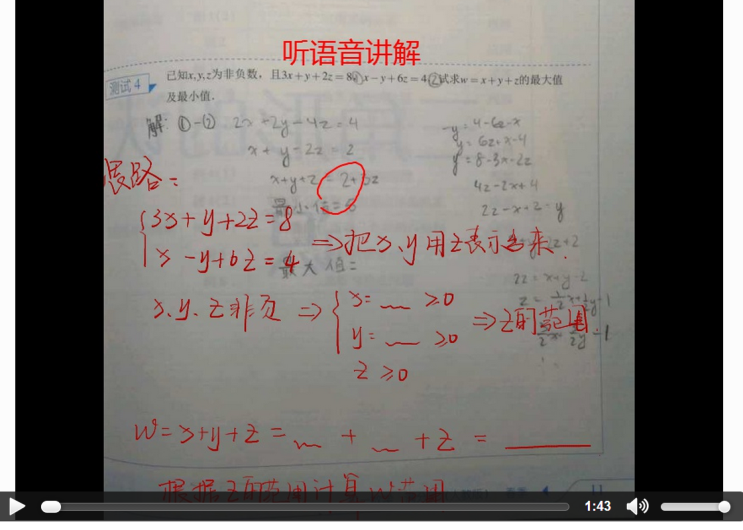 听语音讲解
测试4
已知x,y,z为非负数，且3x+y+2z=8①x-y+6z=4②试求w=x+y+z的最大值
及最小值.
解: ①-② 2x+2y-4z=4
x+y-2z=2
x+y+z=2+3z
最小值=
最大值=
-y=4-6z-x
y=6z+x-4
y=8-3x-2z
4z-2x+4
2z-x+2=y
2z=x+y-2
思路:
3x+y+2z=8
x-y+6z=4
⇒把x、y用z表示出来.
x、y、z非负 ⇒ x=__≥0
y=__≥0
z≥0
⇒z的范围
W=x+y+z=__+__+z=______
根据z的范围计算W范围
1:43